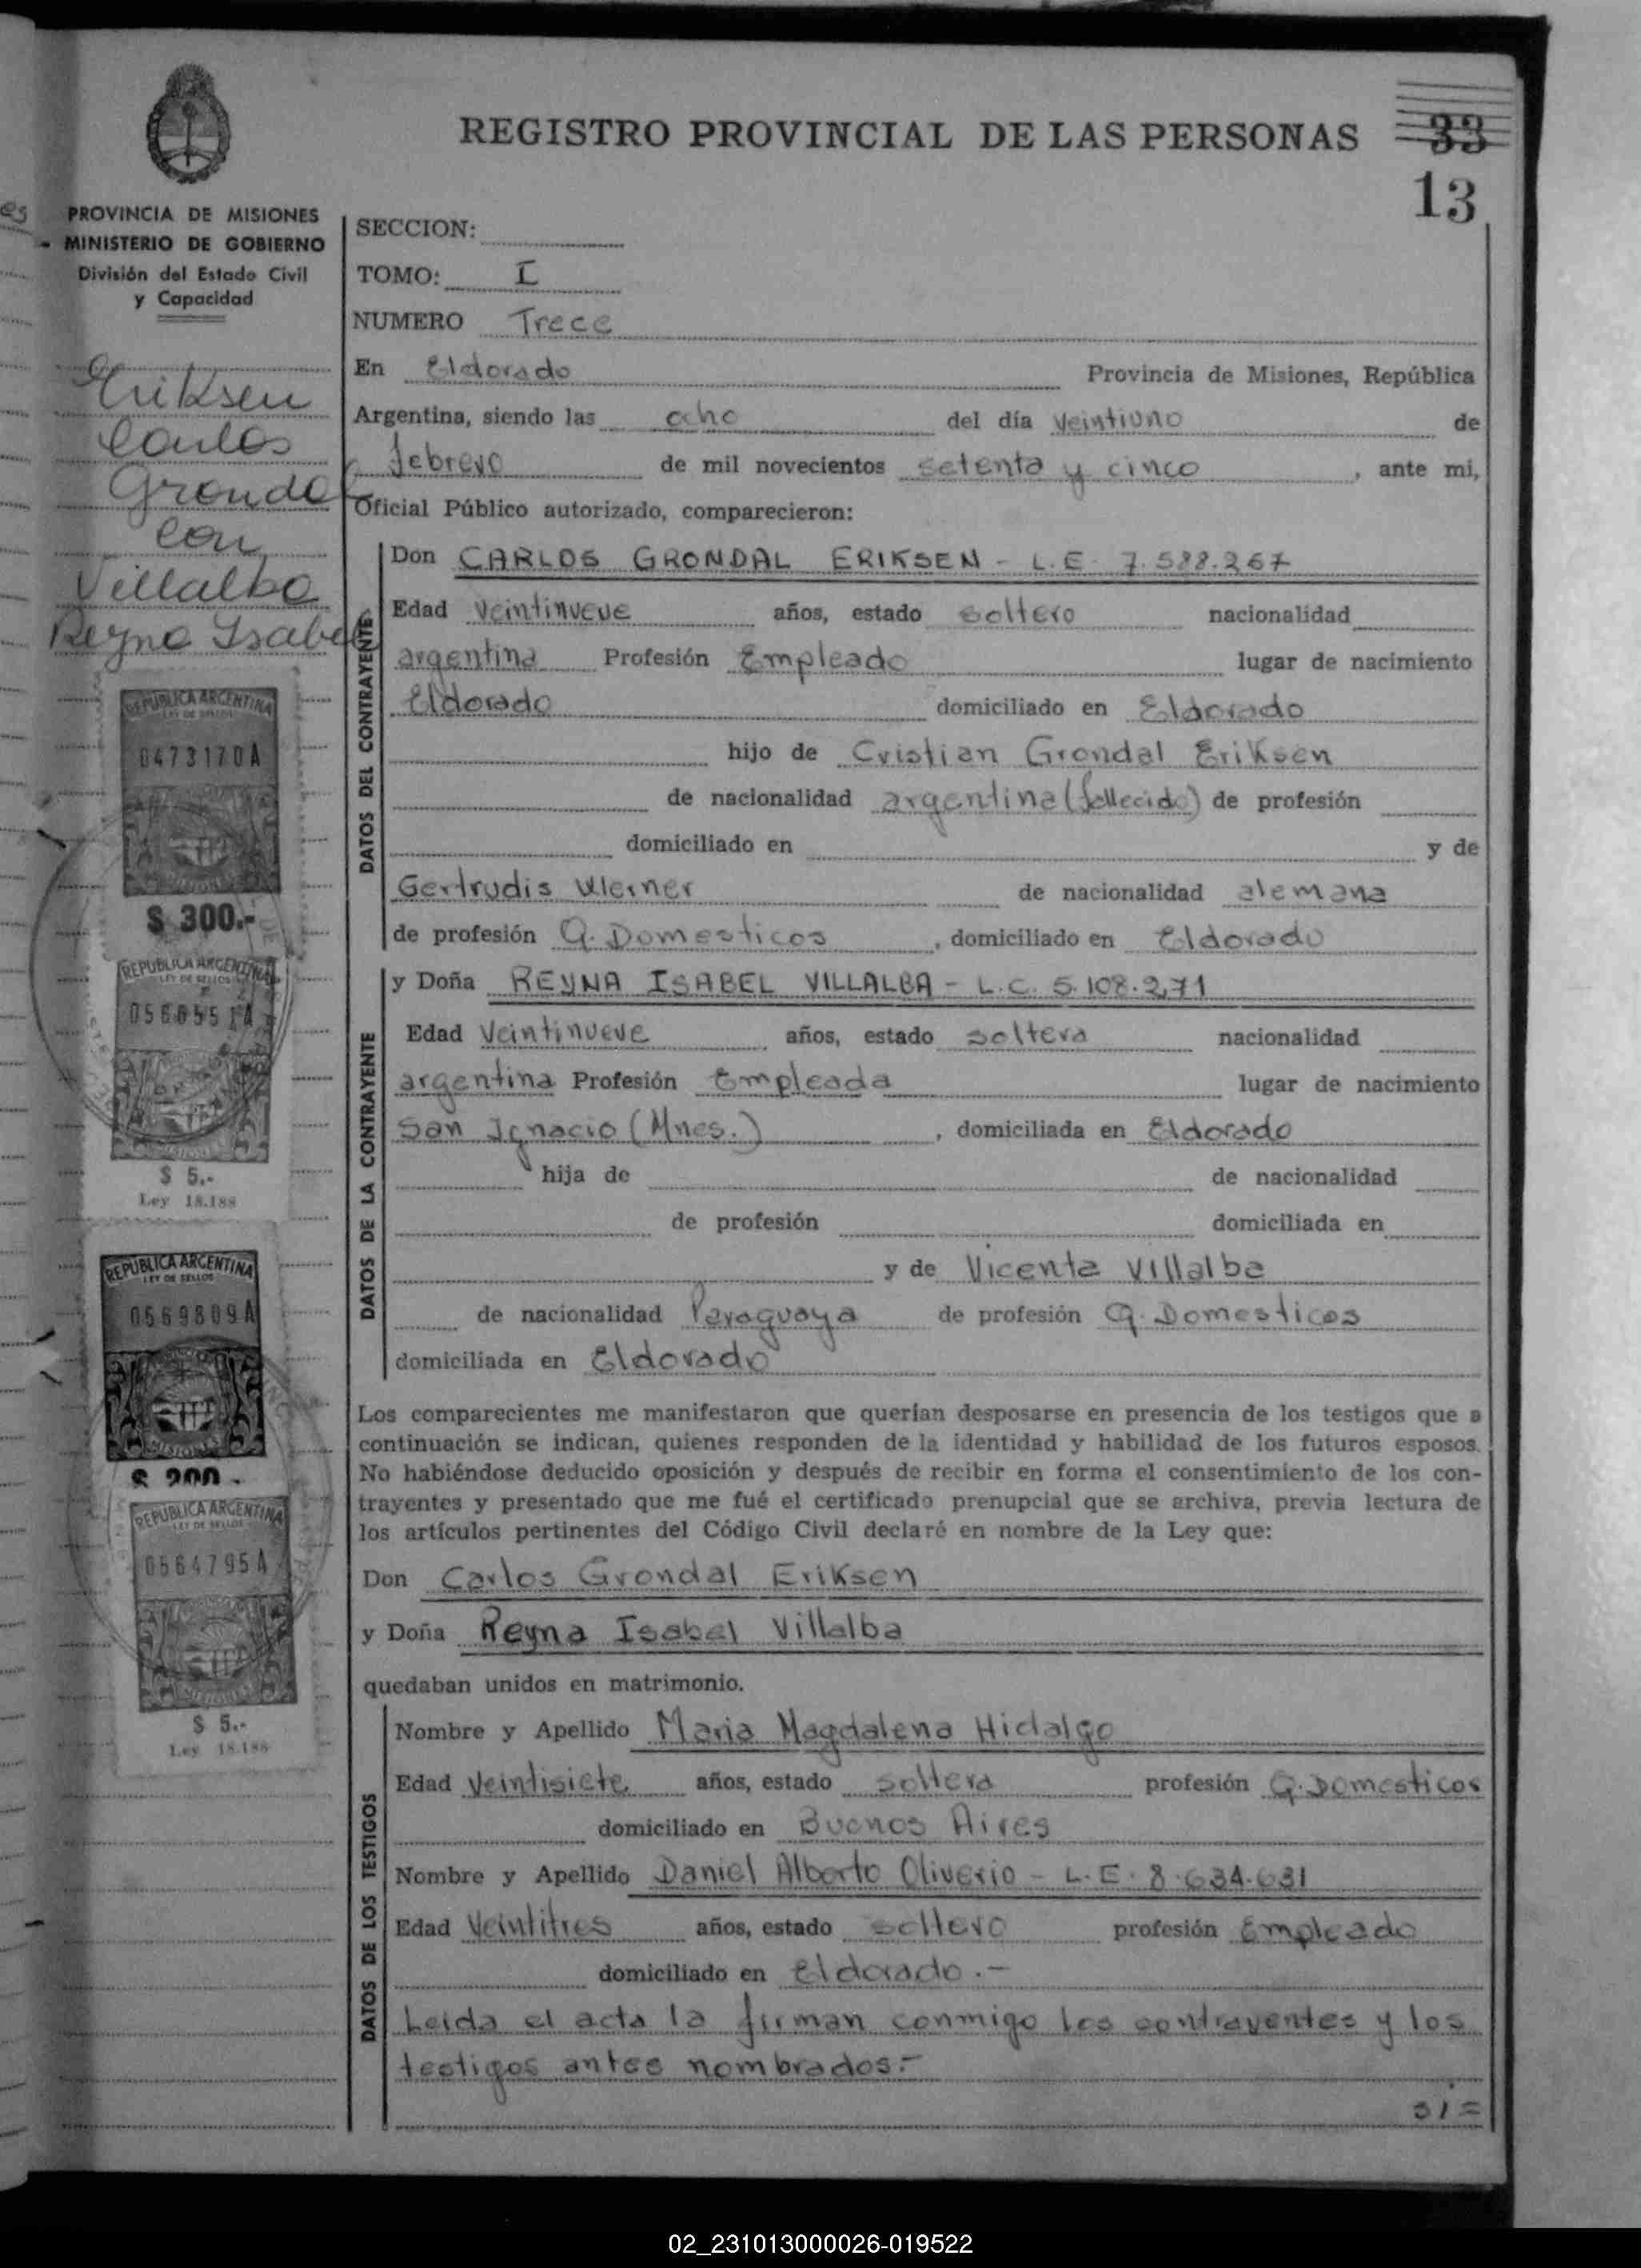 REGISTRO PROVINCIAL DE LAS PERSONAS
33
13
PROVINCIA DE MISIONES
MINISTERIO DE GOBIERNO
División del Estado Civil
y Capacidad
Eriksen
Carlos
Grondal
con
Villalba
Reyna Isabel
REPUBLICA ARGENTINA
LEY DE SELLOS
0473170A
$ 300.-
REPUBLICA ARGENTINA
LEY DE SELLOS
$ 5.-
Ley 18.188
REPUBLICA ARGENTINA
LEY DE SELLOS
0569809A
MISIONES
$ 200.-
REPUBLICA ARGENTINA
LEY DE SELLOS
0564795A
$ 5.-
Ley 18.188
SECCION:
TOMO: I
NUMERO Trece
En Eldorado Provincia de Misiones, República
Argentina, siendo las ocho del día veintiuno de
febrero de mil novecientos setenta y cinco, ante mi,
Oficial Público autorizado, comparecieron:
DATOS DEL CONTRAYENTE
Don CARLOS GRONDAL ERIKSEN - L.E. 7.588.267
Edad veintinueve años, estado soltero nacionalidad
argentina Profesión Empleado lugar de nacimiento
Eldorado domiciliado en Eldorado
hijo de Cristian Grondal Eriksen
de nacionalidad argentina (fallecido) de profesión
domiciliado en y de
Gertrudis Werner de nacionalidad alemana
de profesión Q. Domesticos, domiciliado en Eldorado
DATOS DE LA CONTRAYENTE
y Doña REYNA ISABEL VILLALBA - L.C. 5.108.271
Edad Veintinueve años, estado soltera nacionalidad
argentina Profesión Empleada lugar de nacimiento
San Ignacio (Mnes.), domiciliada en Eldorado
hija de de nacionalidad
de profesión domiciliada en
y de Vicenta Villalba
de nacionalidad Paraguaya de profesión Q. Domesticos
domiciliada en Eldorado
Los comparecientes me manifestaron que querían desposarse en presencia de los testigos que a
continuación se indican, quienes responden de la identidad y habilidad de los futuros esposos.
No habiéndose deducido oposición y después de recibir en forma el consentimiento de los con-
trayentes y presentado que me fué el certificado prenupcial que se archiva, previa lectura de
los artículos pertinentes del Código Civil declaré en nombre de la Ley que:
Don Carlos Grondal Eriksen
y Doña Reyna Isabel Villalba
quedaban unidos en matrimonio.
DATOS DE LOS TESTIGOS
Nombre y Apellido Maria Magdalena Hidalgo
Edad Veintisiete años, estado soltera profesión Q. Domesticos
domiciliado en Buenos Aires
Nombre y Apellido Daniel Alberto Oliverio - L.E. 8.634.631
Edad Veintitres años, estado soltero profesión Empleado
domiciliado en Eldorado.-
Leida el acta la firman conmigo los contrayentes y los
testigos antes nombrados.-
02_231013000026-019522